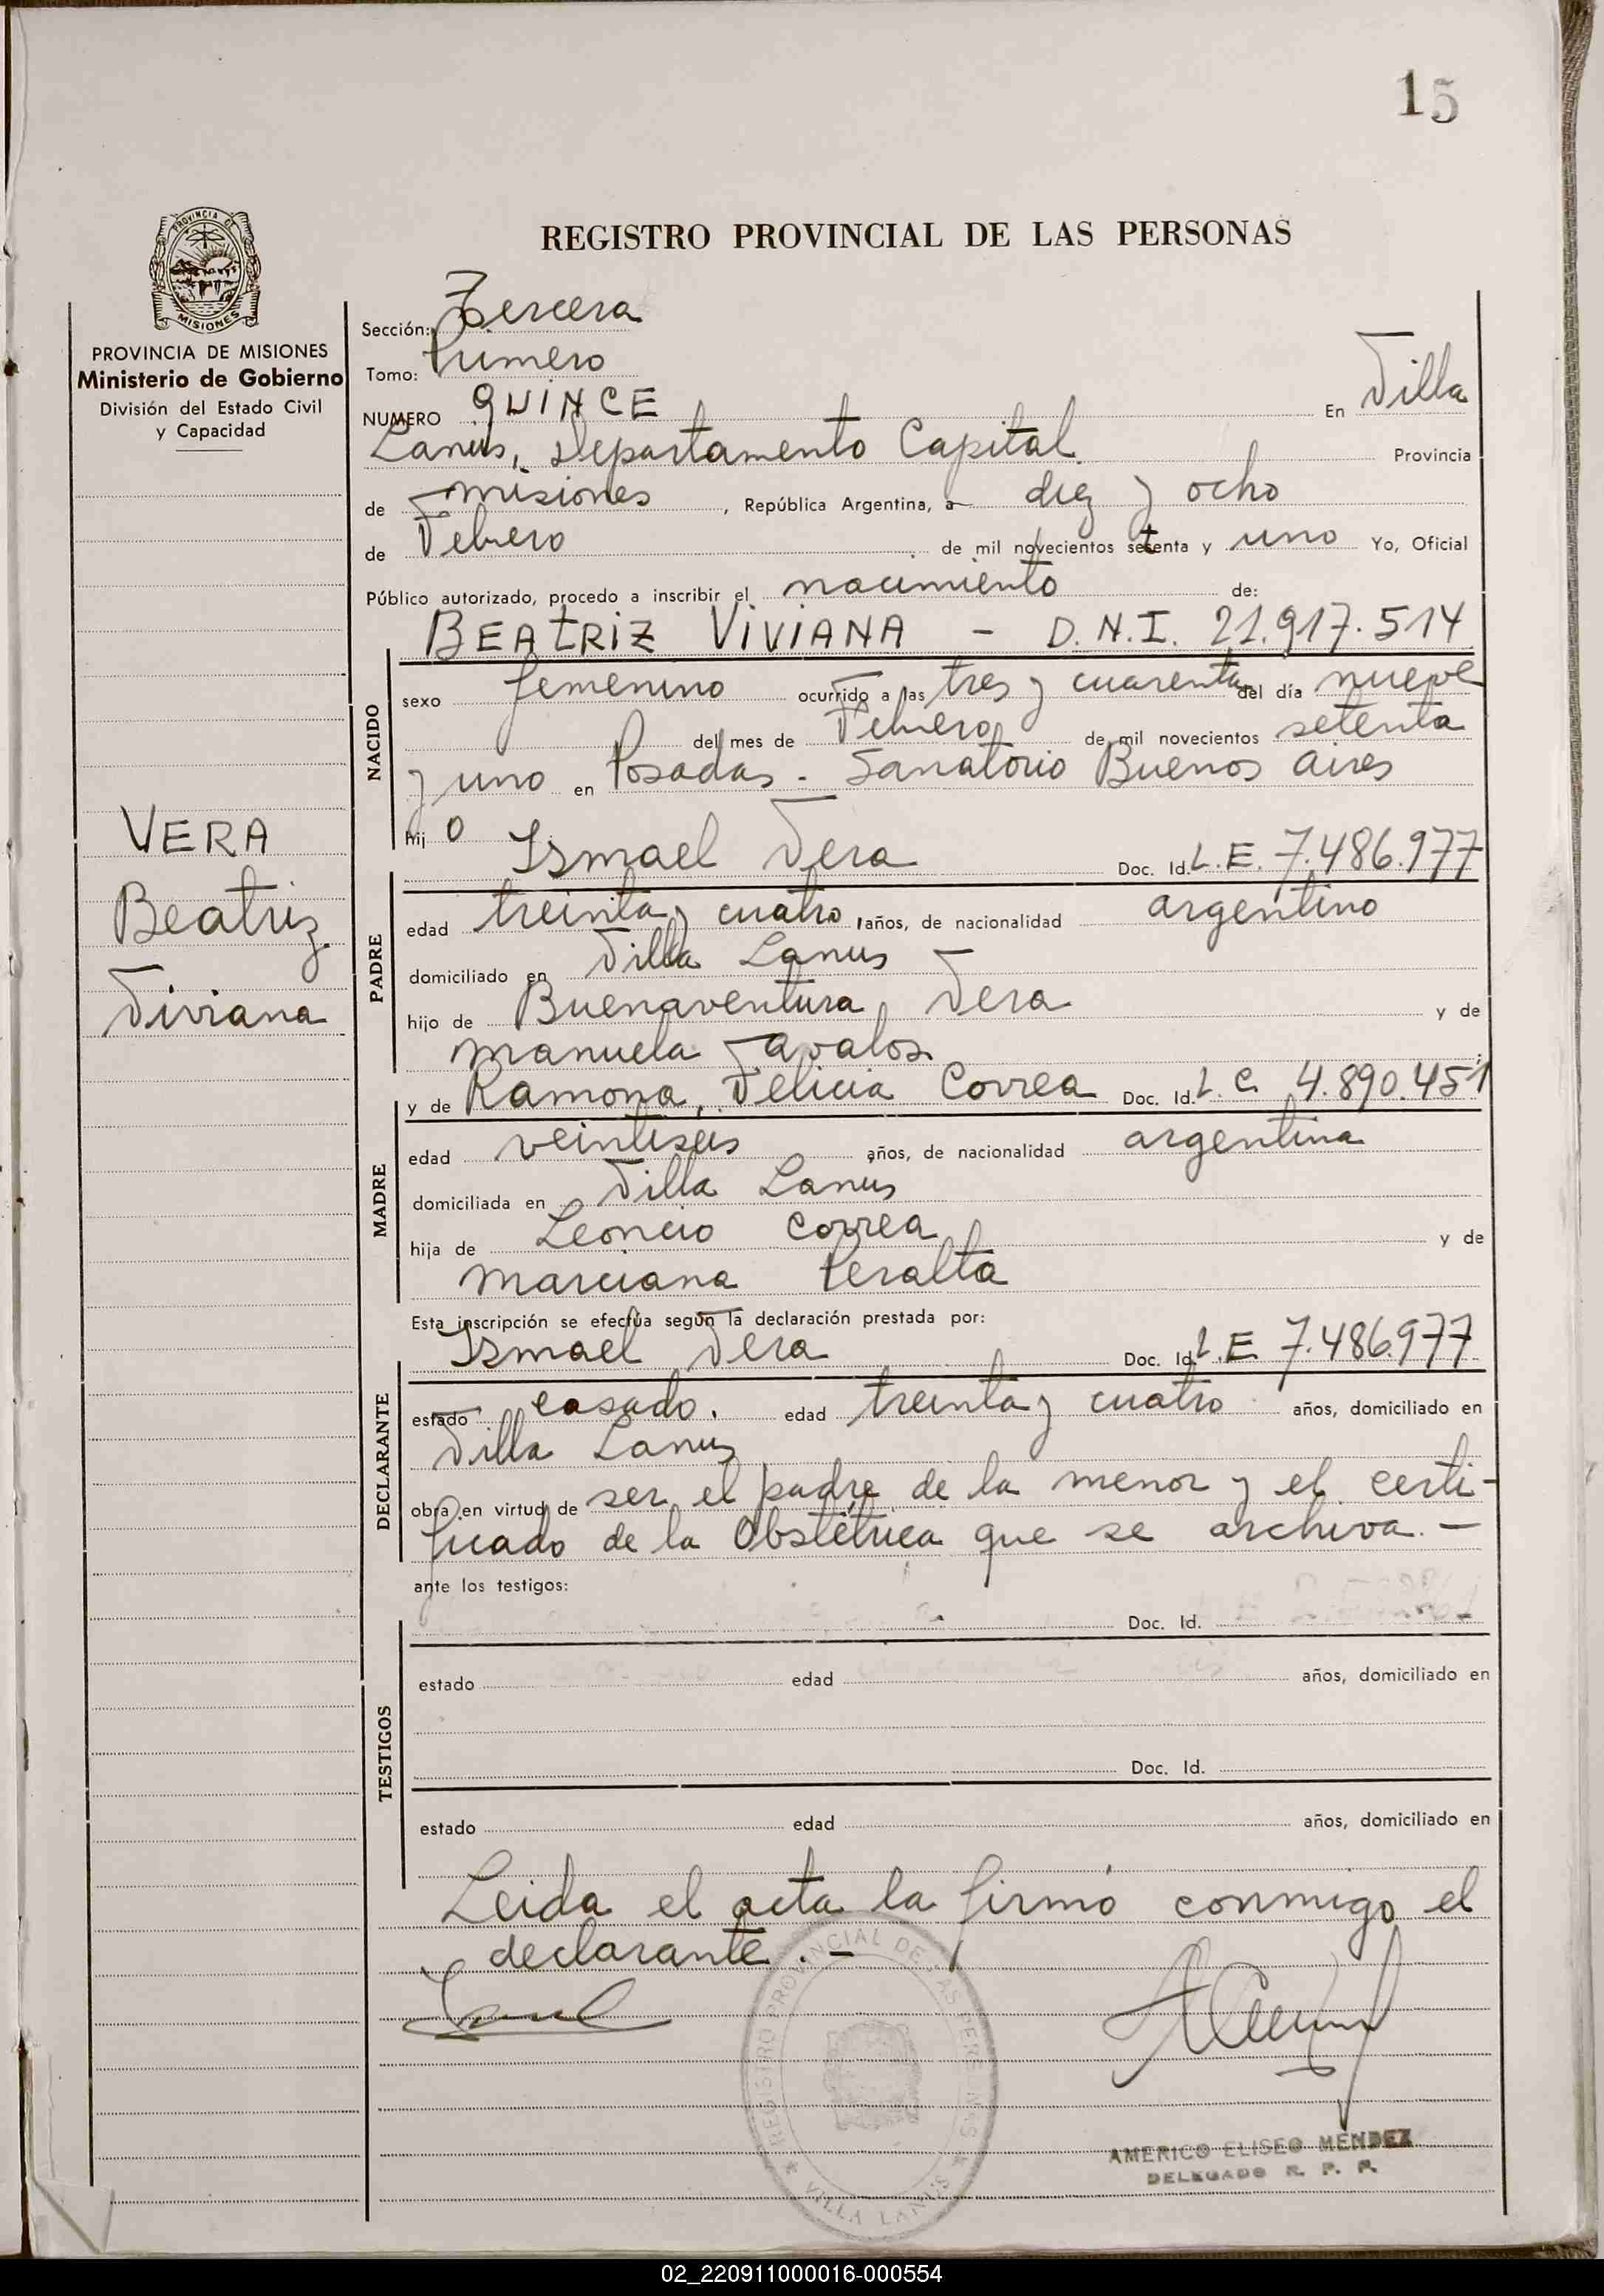 15
PROVINCIA DE
MISIONES
REGISTRO PROVINCIAL DE LAS PERSONAS
PROVINCIA DE MISIONES
Ministerio de Gobierno
División del Estado Civil
y Capacidad
VERA
Beatriz
Viviana
Sección: Tercera
Tomo: Primero
NUMERO QUINCE En Villa
Lanús, Departamento Capital Provincia
de Misiones, República Argentina, a diez y ocho
de Febrero de mil novecientos setenta y uno Yo, Oficial
Público autorizado, procedo a inscribir el nacimiento de:
BEATRIZ VIVIANA - D.N.I. 21.917.514
NACIDO
sexo femenino ocurrido a las tres y cuarenta del día nueve
del mes de Febrero de mil novecientos setenta
y uno en Posadas - Sanatorio Buenos Aires
hij o Ismael Vera Doc. Id. L.E. 7.486.977
PADRE
edad treinta y cuatro años, de nacionalidad argentino
domiciliado en Villa Lanus
hijo de Buenaventura Vera y de
Manuela Avalos
y de Ramona Felicia Correa Doc. Id. L.C. 4.890.451
MADRE
edad veintiseis años, de nacionalidad argentina
domiciliada en Villa Lanus
hija de Leoncio Correa y de
Marciana Peralta
Esta inscripción se efectúa según la declaración prestada por:
Ismael Vera Doc. Id. L.E. 7.486.977
DECLARANTE
estado casado. edad treinta y cuatro años, domiciliado en
Villa Lanus
obra en virtud de ser el padre de la menor y el certi-
ficado de la Obstétrica que se archiva. -
ante los testigos:
Doc. Id.
TESTIGOS
estado edad años, domiciliado en
Doc. Id.
estado edad años, domiciliado en
Leida el acta la firmó conmigo el
declarante. -
REGISTRO PROVINCIAL DE LAS PERSONAS
VILLA LANUS
AMERICO ELISEO MÉNDEZ
DELEGADO R. P. P.
02_220911000016-000554